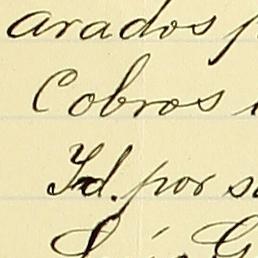 arados p
Cobros
Id. por s